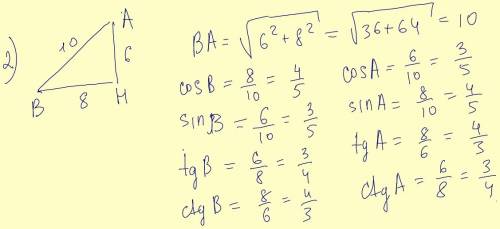 2)
A
10
6
B
8
H
BA = √6² + 8² = √36 + 64 = 10
cosB = 8/10 = 4/5
cosA = 6/10 = 3/5
sinB = 6/10 = 3/5
sinA = 8/10 = 4/5
tgB = 6/8 = 3/4
tgA = 8/6 = 4/3
ctgB = 8/6 = 4/3
ctgA = 6/8 = 3/4